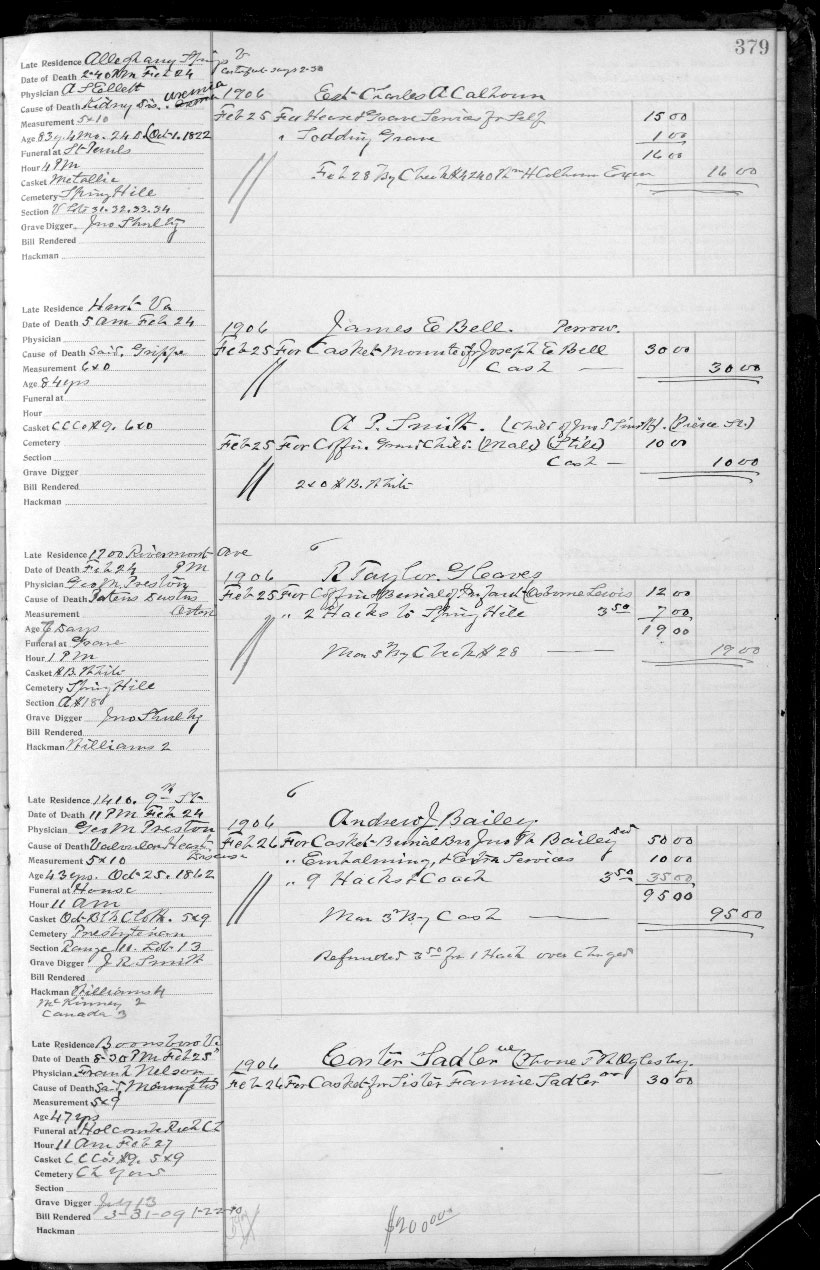 379
Late Residence Alleghany Springs V
Date of Death 2-40 PM Feb 24 Certificate says 2-30
Physician A F Ellett
Cause of Death Kidney Dis. uremia
Measurement 5x10
Age 83y. 4mo. 24 D. (Oct-1. 1822
Funeral at St Pauls
Hour 4 PM
Casket Metallic
Cemetery Spring Hill
Section V Lots 31. 32. 33. 34
Grave Digger Jno Shelby
Bill Rendered
Hackman
1906 Est Charles A Calhoun
Feb 25 For Hearse & Grave Service for Self 15 00
" Sodding Grave 1 00
16 00
Feb 28 By Check #4240 Calhoun 16 00
Late Residence Hurt Va
Date of Death 5 am Feb 24
Physician
Cause of Death Said. Grippe
Measurement 6x0
Age 84 yrs
Funeral at
Hour
Casket CCCo #9. 6x0
Cemetery
Section
Grave Digger
Bill Rendered
Hackman
1906 James E Bell. Perrow.
Feb 25 For Casket Mounted for Joseph E Bell 30 00
Cash — 30 00
A P. Smith. (Child of Jno T Smith). (Pierce St.)
Feb 25 For Coffin. Grand Child. (Male) (Still) 10 00
Cash — 10 00
2x0 #B. White
Late Residence 1700 Rivermont Ave
Date of Death Feb 24 PM
Physician Geo M. Preston
Cause of Death Patens Ductus
Measurement
Age 7 Days
Funeral at Grave
Hour 1 PM
Casket #B. White
Cemetery Spring Hill
Section A #18
Grave Digger Jno Shelby
Bill Rendered
Hackman Williams 2
6
1906 R Taylor. Gleaves
Feb 25 For Coffin & Burial of Infant Osborne Lewis 12 00
" 2 Hacks to Spring Hill 3 50 7 00
19 00
Mar 3 By Check #28 — 19 00
Late Residence 1410. 9th St
Date of Death 11 PM Feb 24
Physician Geo M Preston
Cause of Death Valvular Heart Disease
Measurement 5x10
Age 43 yrs. Oct-25. 1862
Funeral at House
Hour 11 am
Casket Oct Blk Cloth. 5x9
Cemetery Presbyterian
Section Range 11. Lot 13
Grave Digger J R Smith
Bill Rendered
Hackman Williams 4
McKinney 2
Canada 3
6
1906 Andrew J. Bailey
Feb 26 For Casket Burial Bro Jno Bailey 50 00
" Embalming, & Extra Services 10 00
" 9 Hacks & Coach 3 50 35 00
95 00
Mar 3 By Cash — 95 00
Refunded 3 50 for 1 Hack over charged
Late Residence Boonsboro Va
Date of Death 8-30 PM Feb 25
Physician Frank Nelson
Cause of Death Said. Meningitis
Measurement 5x9
Age 47 yrs
Funeral at Holcomb Rock Ch
Hour 11 am Feb 27
Casket CCCo's #9. 5x9
Cemetery Ch Yard
Section
Grave Digger
Bill Rendered 3-31-09 1-22-
Hackman
1906 Carter Sadler col (Phone T Oglesby.
Feb 26 For Casket for Sister Fannie Sadler 30 00
$200 00